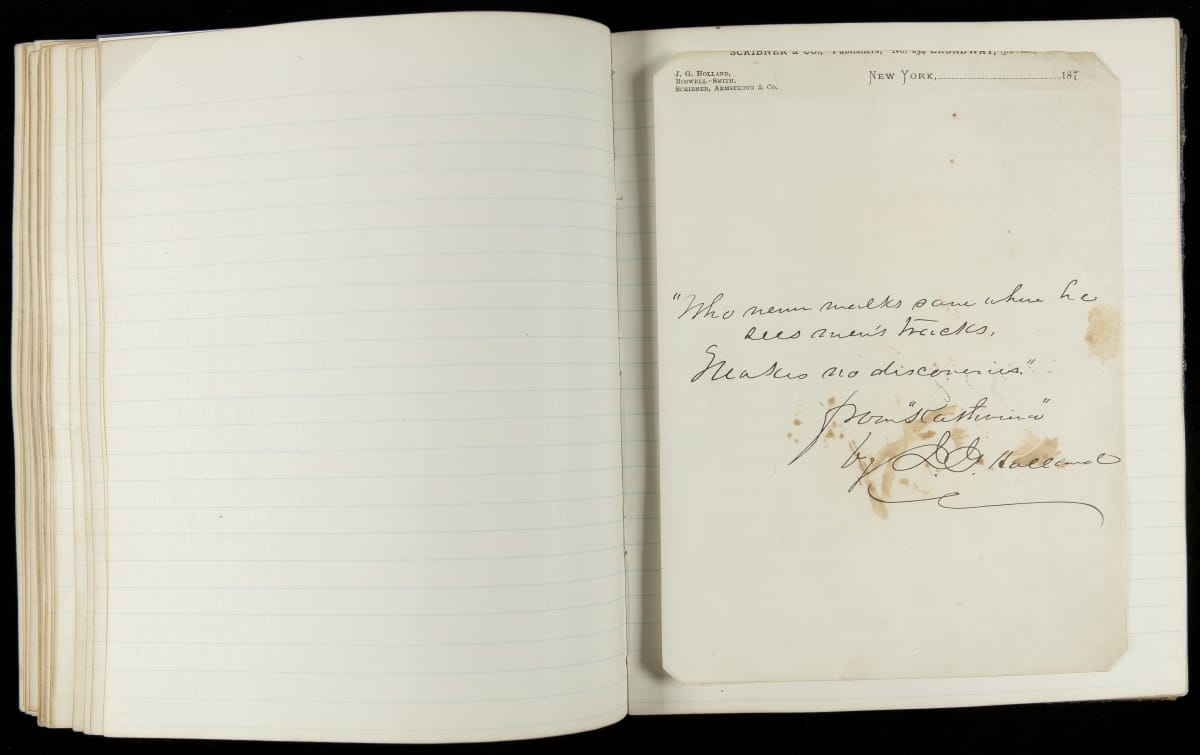 SCRIBNER & CO., Publishers, No. 654 BROADWAY,
J. G. HOLLAND,
ROSWELL-SMITH,
SCRIBNER, ARMSTRONG & CO.
NEW YORK, 187
"Who never walks save where he
sees men's tracks,
Makes no discoveries."
from "Kathrina"
by J. G. Holland